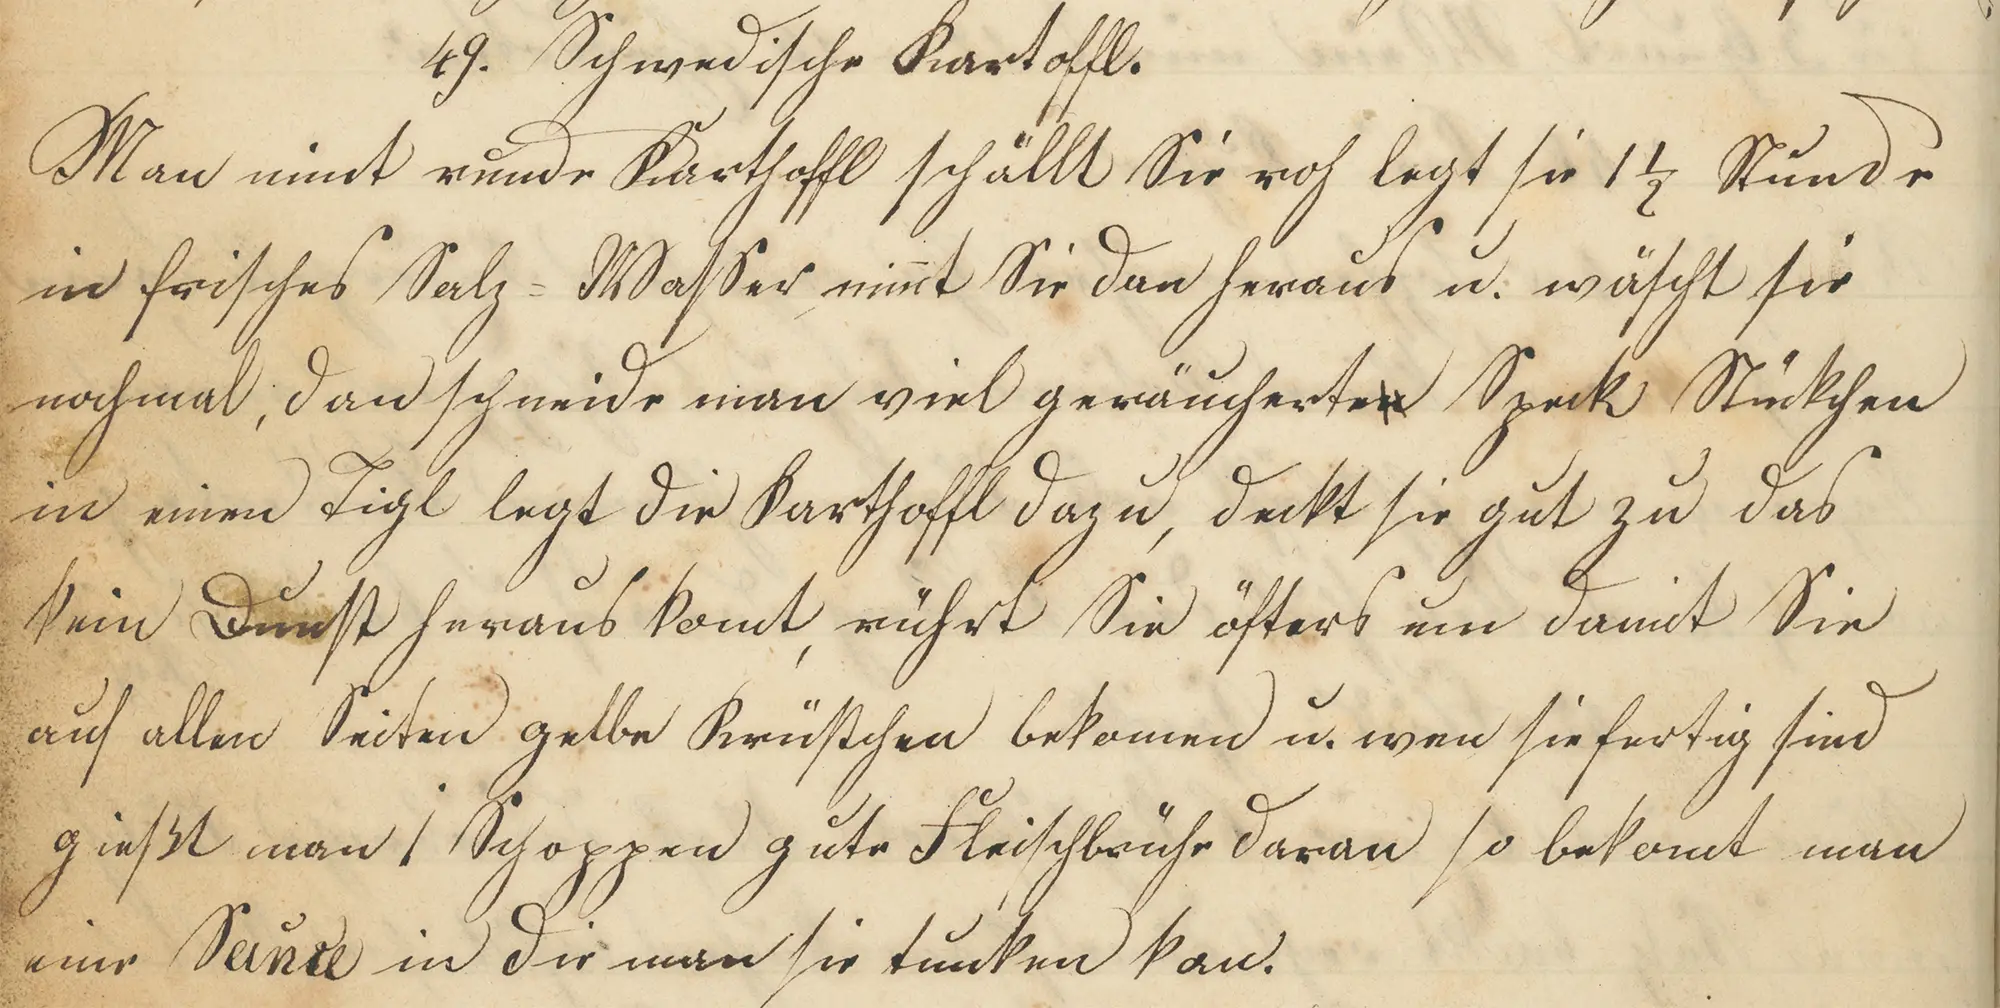 49. Schwedische Kartoffl.
Man nimt runde Karthoffl schällt Sie roh legt sie 1½ Stunde
in frisches Salz=Wasser, nim̅t Sie dan heraus u. wäscht sie
nochmal, dan schneide man viel geräucherten Speck Stükchen
in einen Tigl legt die Karthoffl dazu, dekt sie gut zu das
kein Dunst heraus komt, rührt Sie öfters um damit Sie
auf allen Seiten gelbe Krüstchen bekomen u. wen sie fertig sind
gießt man 1 Schoppen gute Fleischbrühe daran so bekomt man
eine Sauce in die man sie tunken kan.